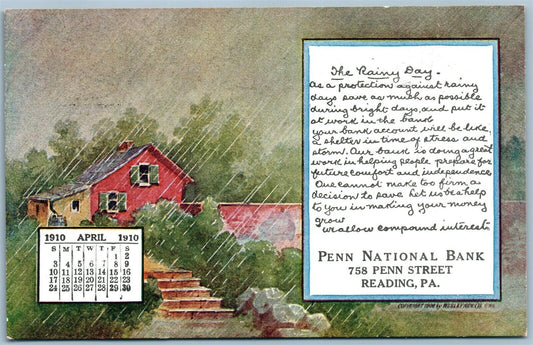 The Rainy Day.
As a protection against rainy
days save as much as possible
during bright days, and put it
at work in the bank
your bank account will be like
a shelter in time of stress and
storm. Our bank is doing a great
work in helping people prepare for
future comfort and independence
One cannot make too firm a
decision to save. Let us be a help
to you in making your money
grow
we allow compound interest.
PENN NATIONAL BANK
758 PENN STREET
READING, PA.
1910 APRIL 1910
S M T W T F S
1 2
3 4 5 6 7 8 9
10 11 12 13 14 15 16
17 18 19 20 21 22 23
24 25 26 27 28 29 30
COPYRIGHT 1909 BY